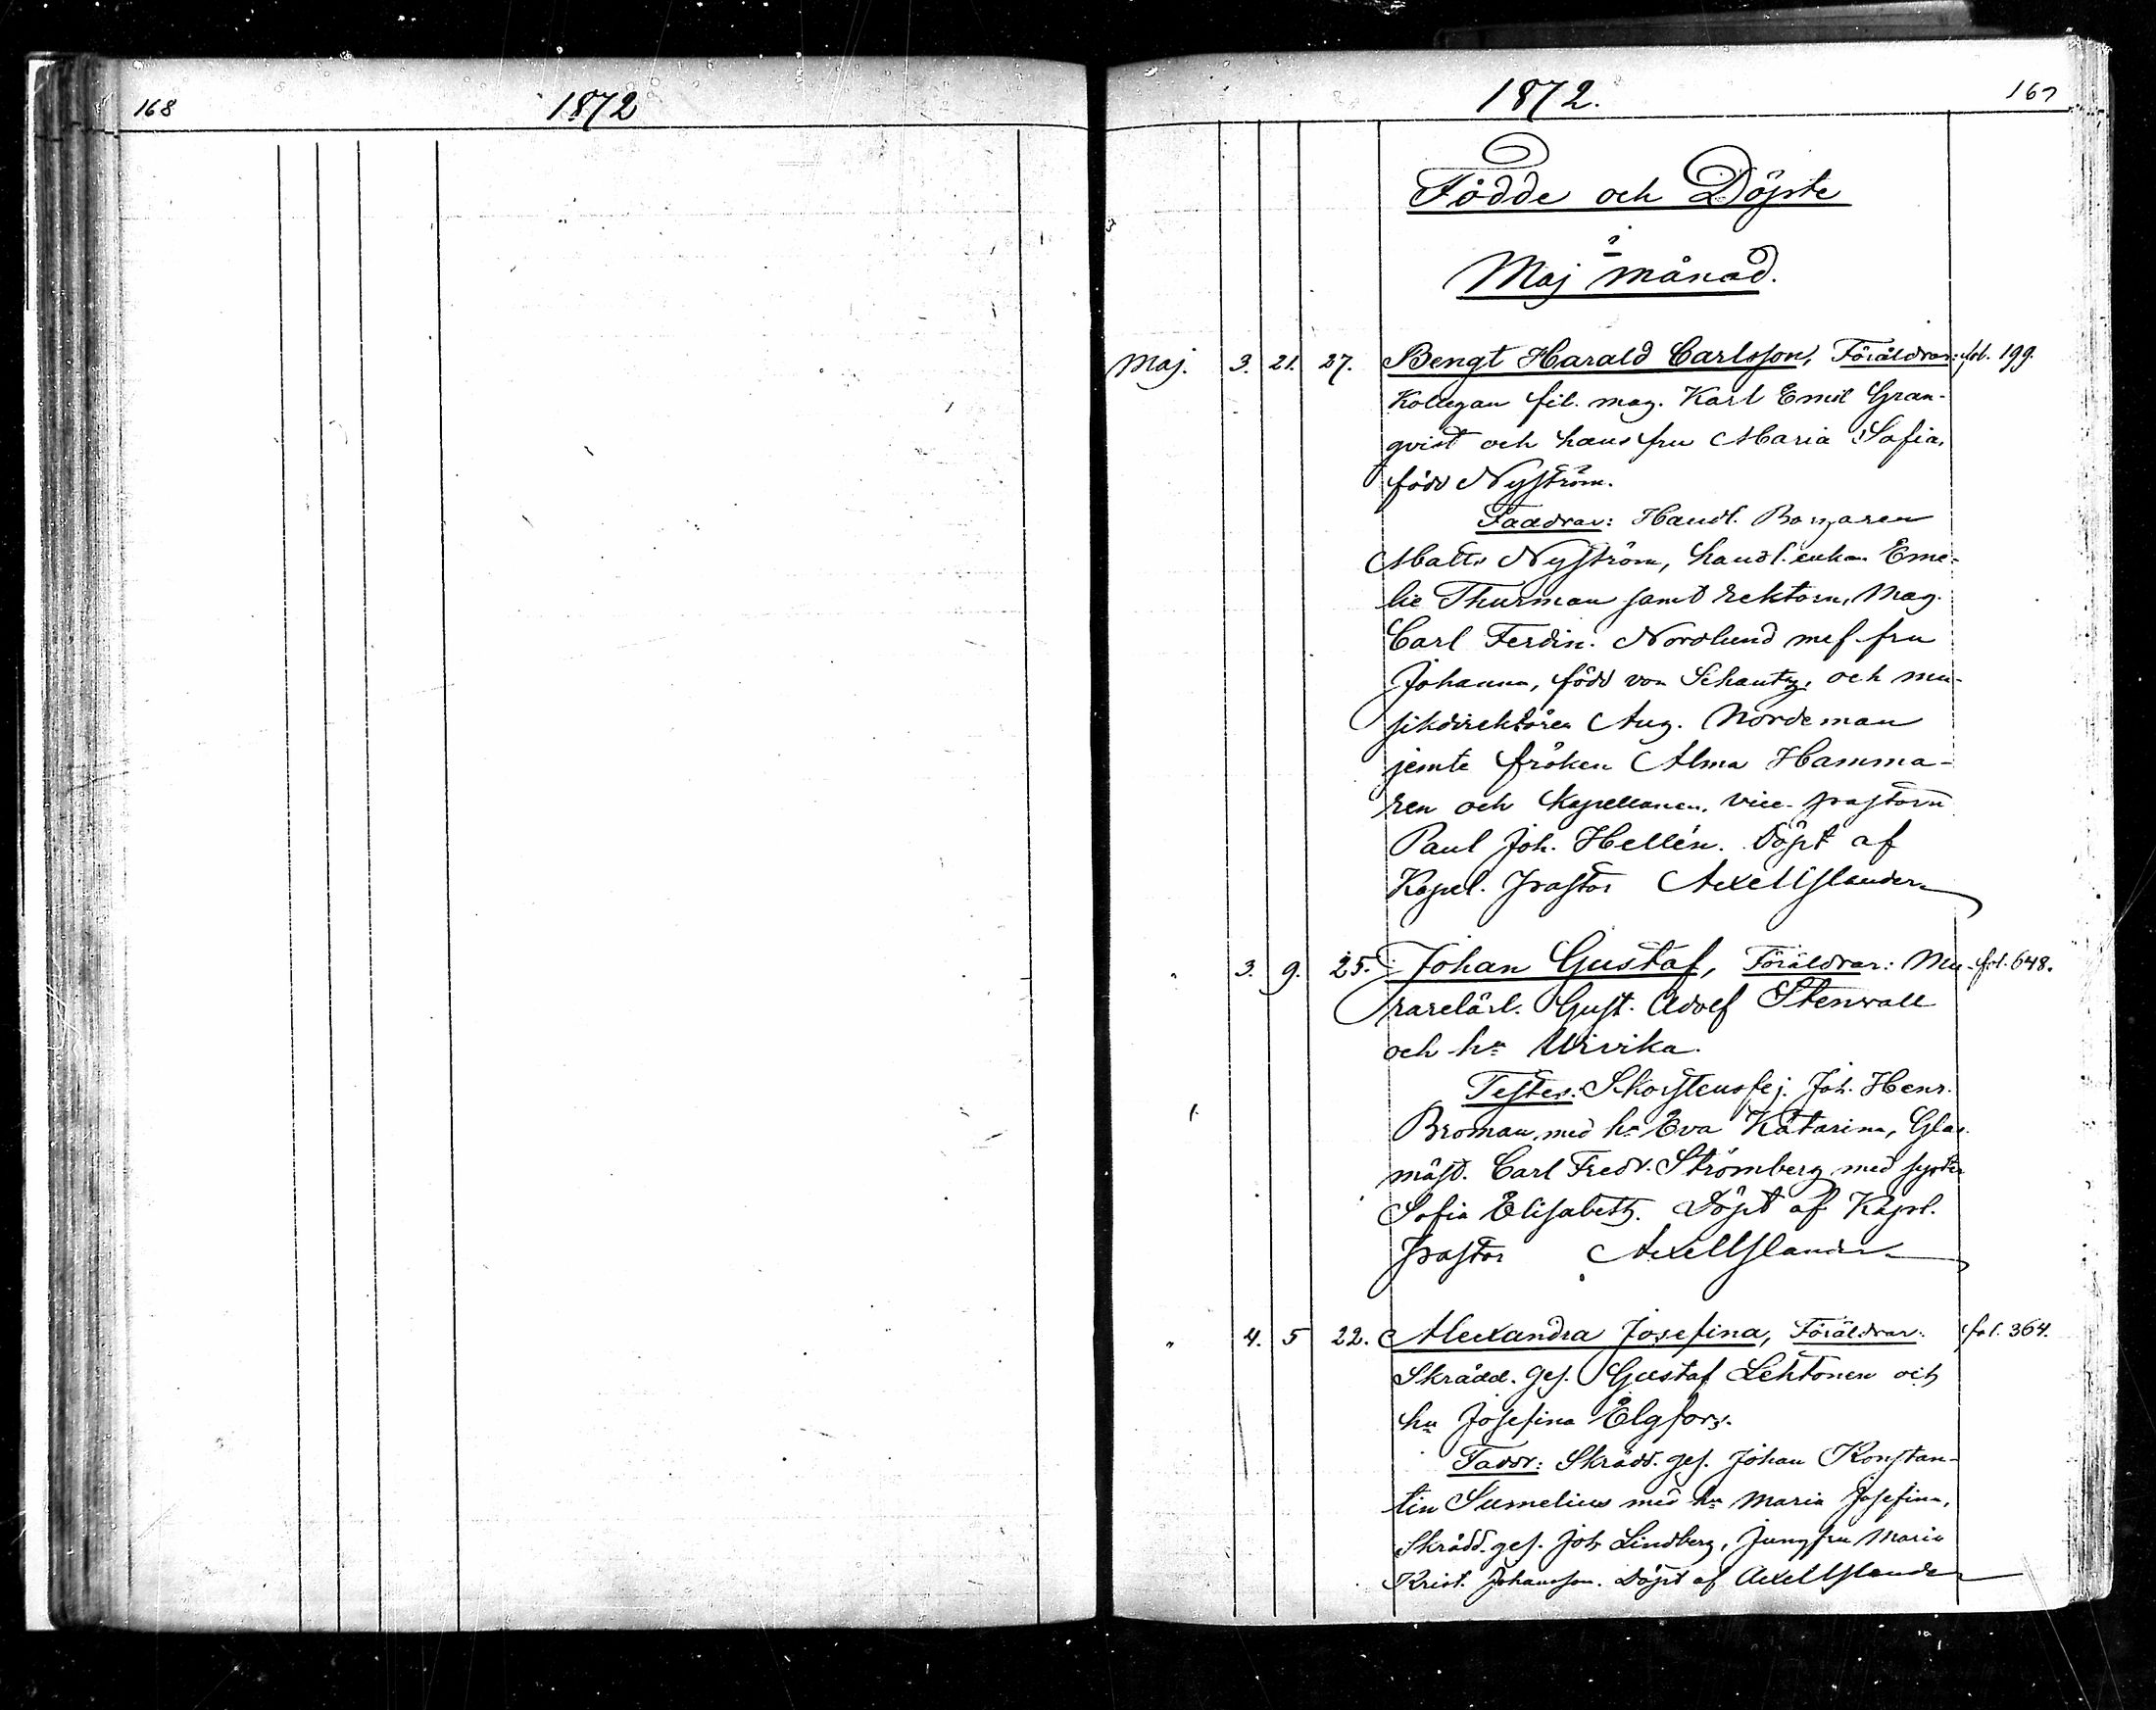 168
1872
1872.
167
Födde och Döpte
i
Maj månad.
Maj. 3. 21. 27. Bengt Harald Carlsson, Föräldrar: fol. 199.
Kollegan fil. mag. Karl Emil Gran-
qvist och hans fru Maria Sofia,
född Nyström.
Faddrar: Handl. Borgaren
Matts Nyström, handl. enkan Eme-
lie Thurman samt rektorn, Mag.
Carl Ferdin. Nordlund med fru
Johanna, född von Schantz, och mu-
sikdirektören Aug. Nordeman
jemte fröken Alma Hamma-
ren och Kapellanen, vice-pastorn
Paul Joh. Hellén. Döpt af
Kapel. pastor Axel Islander
" 3. 9. 25. Johan Gustaf, Föräldrar: Mu- fol. 648.
rarelärl. Gust. Adolf Stenvall
och hu Ulrika.
Testes: Skorstensfej. Joh. Henr.
Broman, med hu Eva Katarina, Glas-
mäst. Carl Fredr. Strömberg med syster
Sofia Elisabeth. Döpt af Kapl.
pastor Axel Islander
" 4. 5 22. Alexandra Josefina, Föräldrar: fol. 364.
Skrädd. ges. Gustaf Lehtonen och
hu Josefina Elgfors.
Faddr: Skrädd. ges. Johan Konstan-
tin Sumelius med hu Maria Josefina,
Skrädd. ges. Joh Lindberg, Jungfru Maria
Krist. Johansson. Döpt af Axel Islander